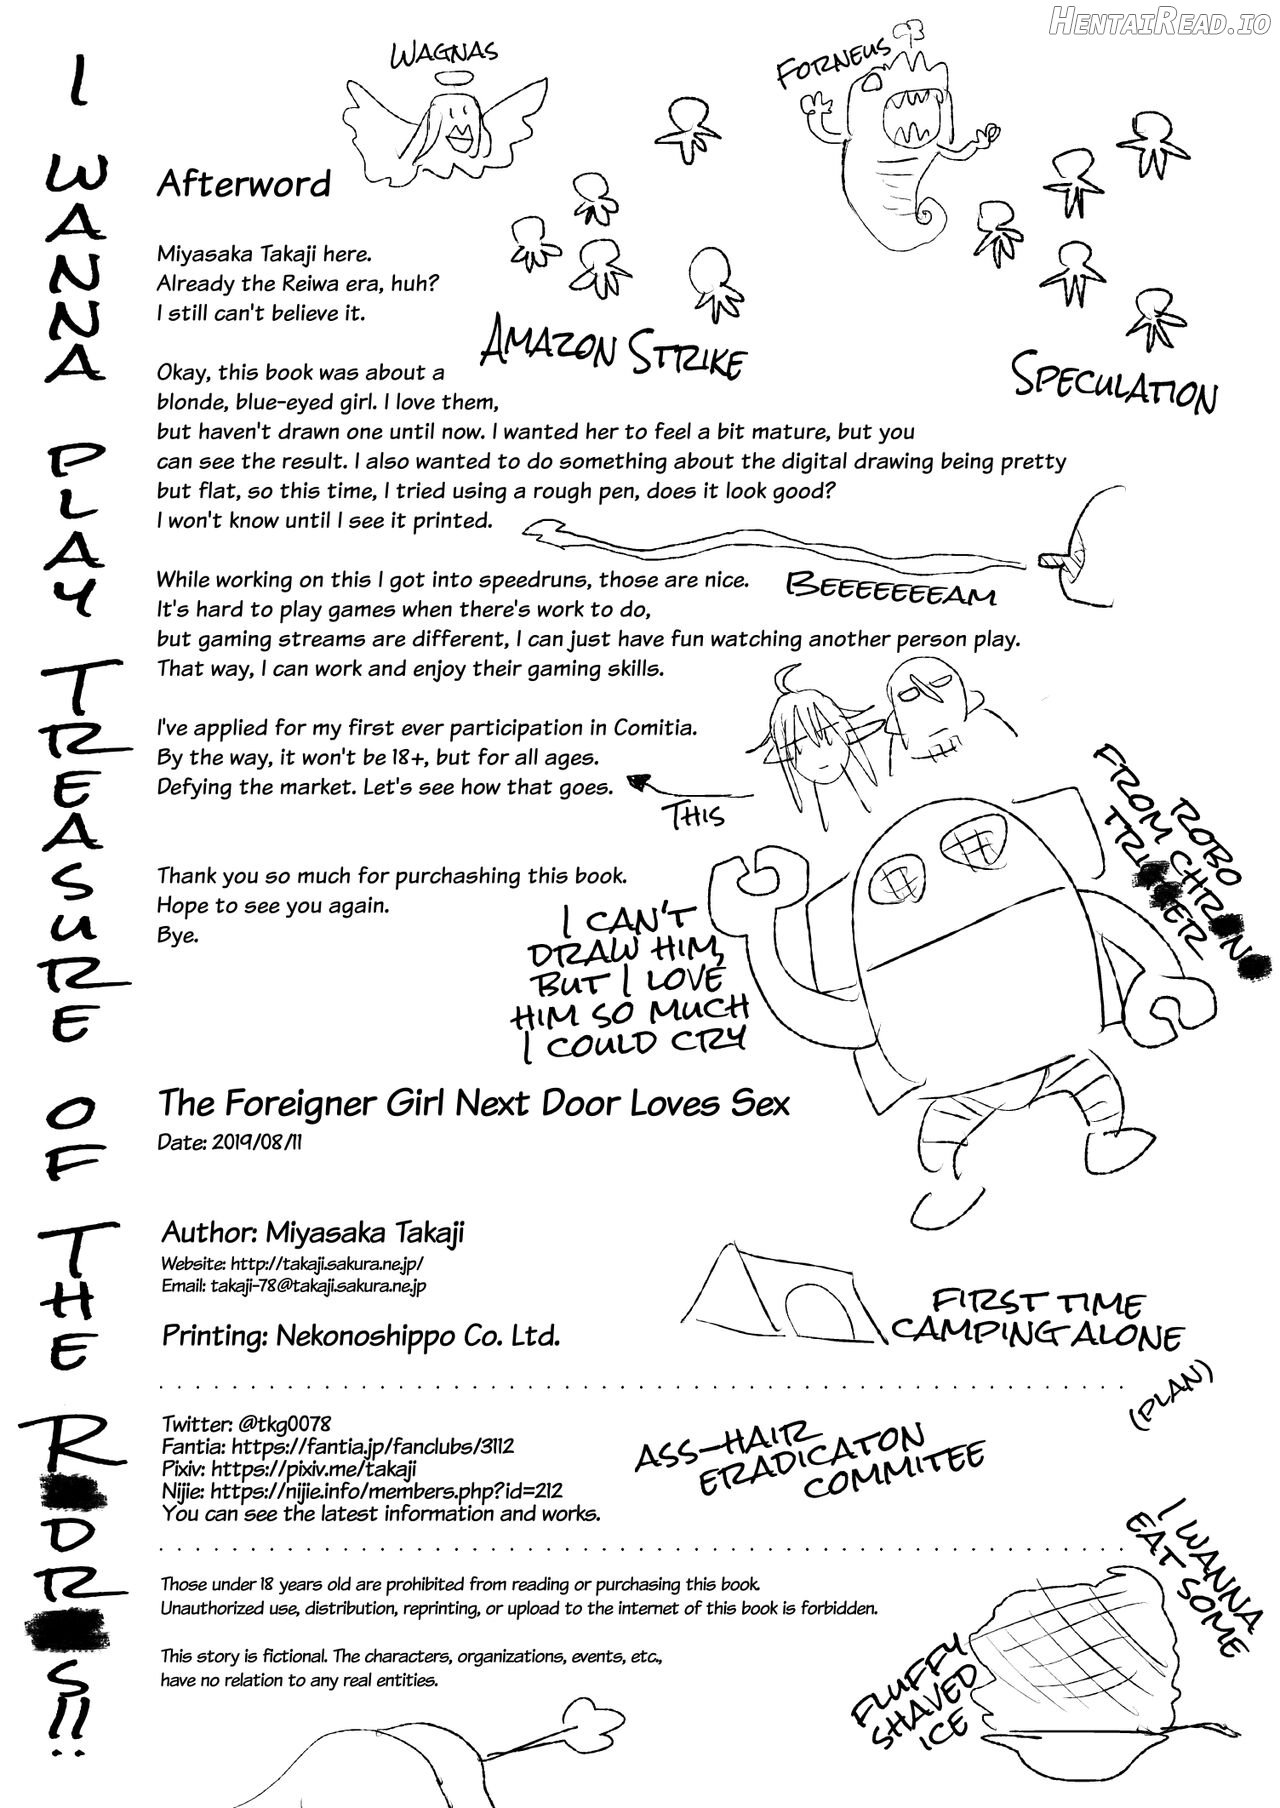 HentaiRead.io
Wagnas
Forneus
I WANNA PLAY TREASURE OF THE R DR S!!
Afterword
Miyasaka Takaji here.
Already the Reiwa era, huh?
I still can't believe it.
AMAZON STRIKE
SPECULATION
Okay, this book was about a
blonde, blue-eyed girl. I love them,
but haven't drawn one until now. I wanted her to feel a bit mature, but you
can see the result. I also wanted to do something about the digital drawing being pretty
but flat, so this time, I tried using a rough pen, does it look good?
I won't know until I see it printed.
BEEEEEEEAM
While working on this I got into speedruns, those are nice.
It's hard to play games when there's work to do,
but gaming streams are different, I can just have fun watching another person play.
That way, I can work and enjoy their gaming skills.
I've applied for my first ever participation in Comitia.
By the way, it won't be 18+, but for all ages.
Defying the market. Let's see how that goes.
THIS
ROBO
FROM CHR N
TRI ER
Thank you so much for purchashing this book.
Hope to see you again.
Bye.
I CAN'T
DRAW HIM,
BUT I LOVE
HIM SO MUCH
I COULD CRY
The Foreigner Girl Next Door Loves Sex
Date: 2019/08/11
Author: Miyasaka Takaji
Website: http://takaji.sakura.ne.jp/
Email: takaji-78@takaji.sakura.ne.jp
Printing: Nekonoshippo Co. Ltd.
FIRST TIME
CAMPING ALONE
(PLAN)
Twitter: @tkg0078
Fantia: https://fantia.jp/fanclubs/3112
Pixiv: https://pixiv.me/takaji
Nijie: https://nijie.info/members.php?id=212
You can see the latest information and works.
ASS-HAIR
ERADICATON
COMMITEE
Those under 18 years old are prohibited from reading or purchasing this book.
Unauthorized use, distribution, reprinting, or upload to the internet of this book is forbidden.
This story is fictional. The characters, organizations, events, etc.,
have no relation to any real entities.
I WANNA
EAT SOME
FLUFFY
SHAVED
ICE